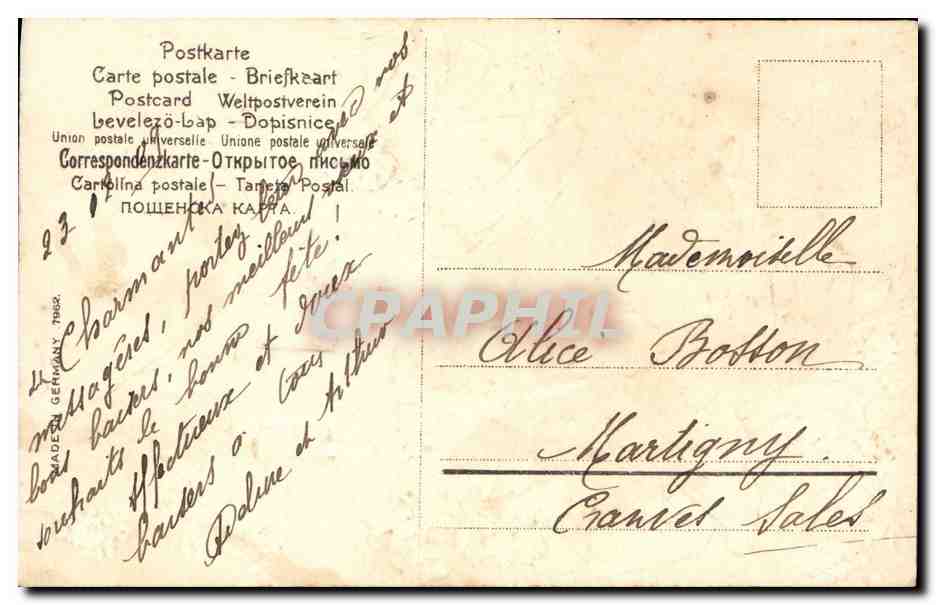 Postkarte
Carte postale - Briefkaart
Postcard Weltpostverein
Levelezö-Lap - Dopisnice
Union postale universelle Unione postale universale
Correspondenzkarte - Открытое письмо
Cartolina postale - Tarjeta Postal.
ПОЩЕНСКА КАРТА.
MADE IN GERMANY 7962.
23
Charmantes
messagères, portez leurs avec nos
bons baisers, nos meilleurs vœux et
souhaits de bonne fête!
Affectueux et doux
baisers à tous
Adeline et Arthur
Mademoiselle
Alice Bosson
Martigny
Cranves Sales
CPAPHIL